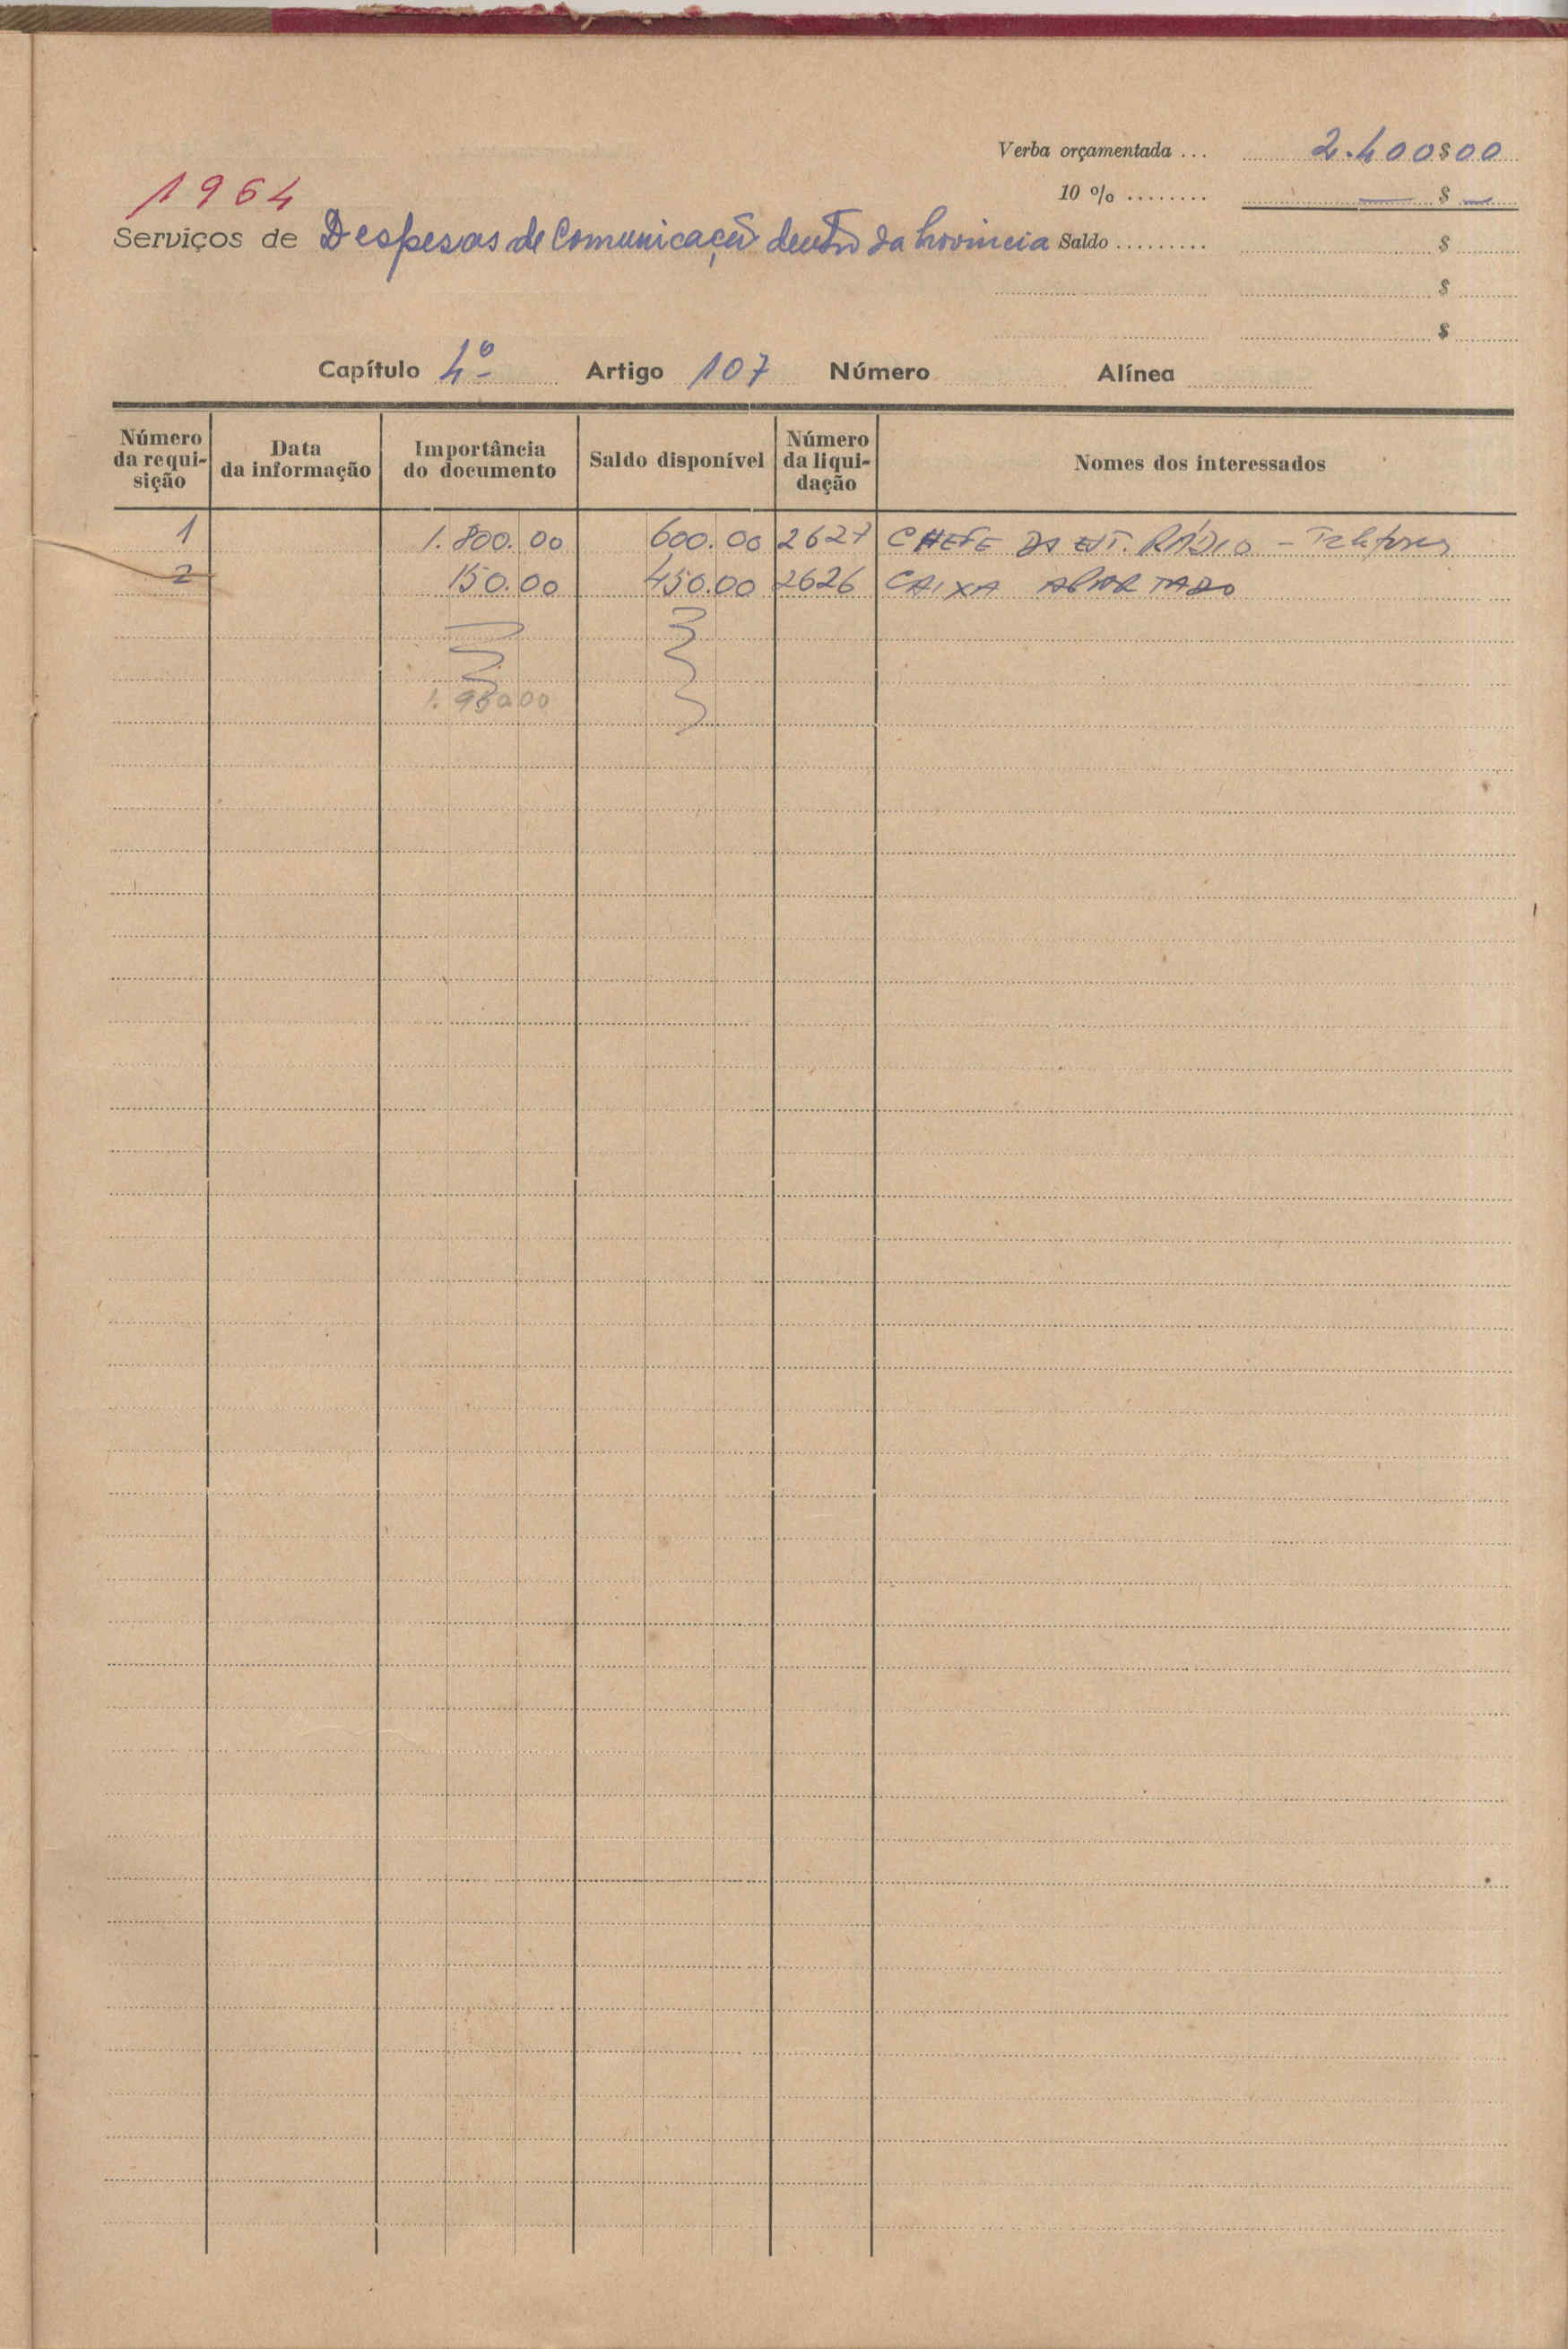 Verba orçamentada ... 2.400$00
1964
10 % ........ — $ —
Serviços de Despesas de Comunicação dentro da Provincia Saldo ......... $
$
$
Capítulo 4º Artigo 107 Número Alínea
Número da requi-sição Data da informação Importância do documento Saldo disponível Número da liqui-dação Nomes dos interessados
1 1.800.00 600.00 2627 CHEFE DA EST. RÁDIO - Telefones
2 150.00 450.00 2626 CAIXA APARTADO
1.950.00